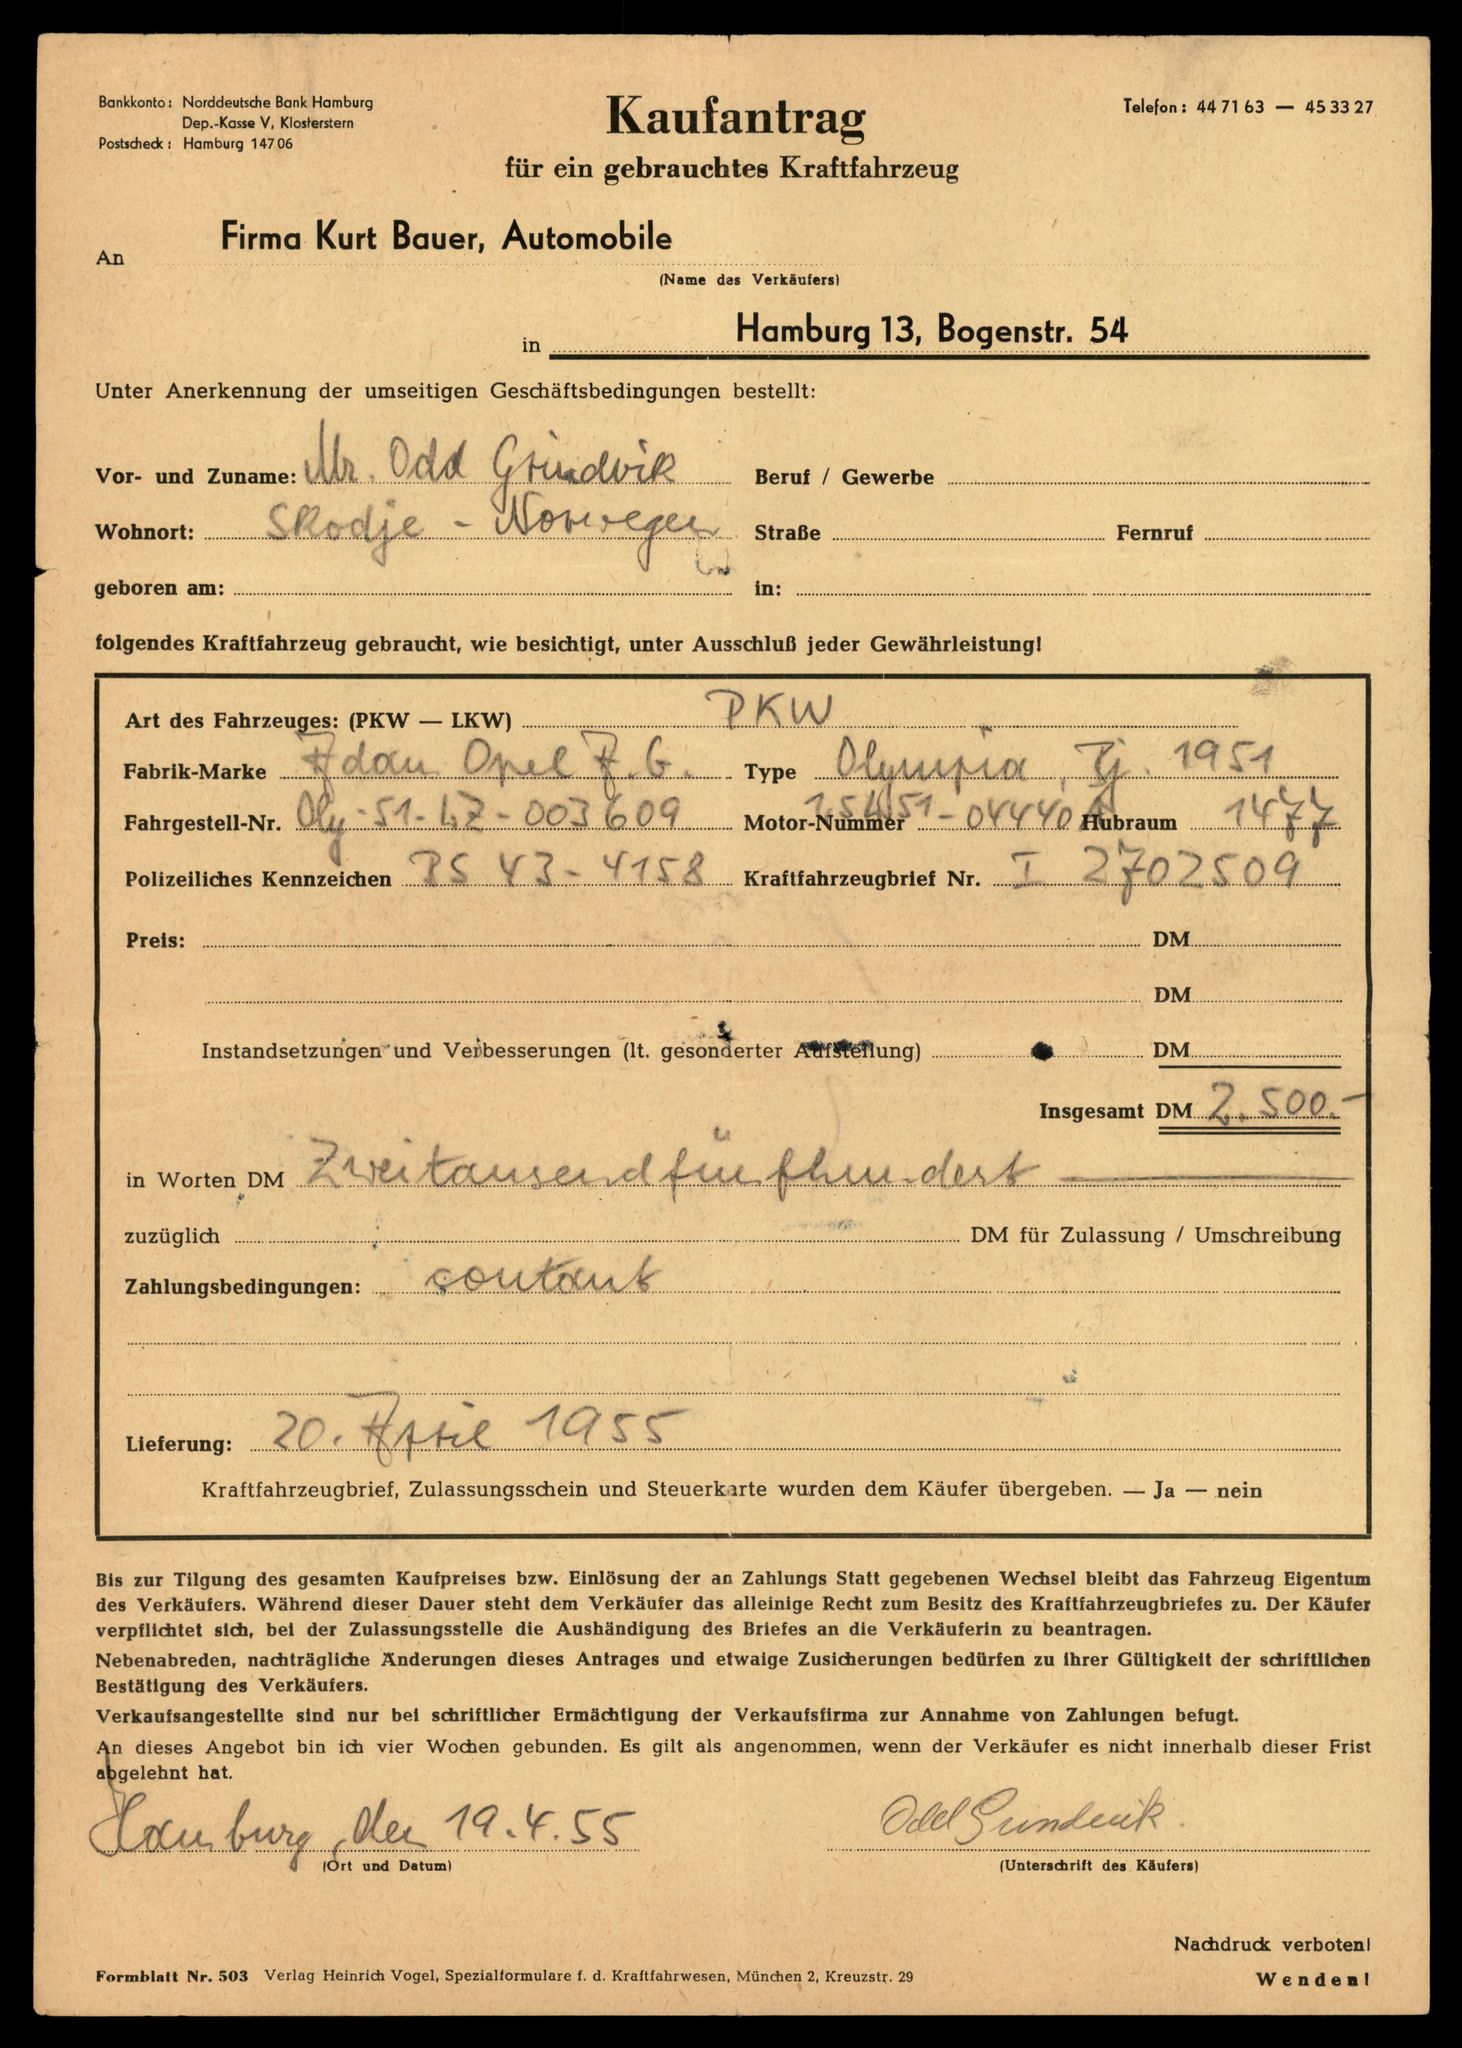 Bankkonto: Norddeutsche Bank Hamburg
Dep.-Kasse V, Klosterstern
Postscheck: Hamburg 147 06
Kaufantrag
für ein gebrauchtes Kraftfahrzeug
Telefon: 44 71 63 — 45 33 27
An Firma Kurt Bauer, Automobile
(Name des Verkäufers)
in Hamburg 13, Bogenstr. 54
Unter Anerkennung der umseitigen Geschäftsbedingungen bestellt:
Vor- und Zuname: Mr. Odd Grindvik Beruf / Gewerbe
Wohnort: Skodje - Norwegen Straße Fernruf
geboren am: in:
folgendes Kraftfahrzeug gebraucht, wie besichtigt, unter Ausschluß jeder Gewährleistung!
Art des Fahrzeuges: (PKW — LKW) PKW
Fabrik-Marke Adam Opel A.G. Type Olympia, Bj. 1951
Fahrgestell-Nr. Oly-51-LZ-003609 Motor-Nummer -04440 Hubraum 1477
Polizeiliches Kennzeichen 43-4158 Kraftfahrzeugbrief Nr. I 2702509
Preis: DM
DM
Instandsetzungen und Verbesserungen (lt. gesonderter Aufstellung) DM
Insgesamt DM 2.500.-
in Worten DM Zweitausendfünfhundert
zuzüglich DM für Zulassung / Umschreibung
Zahlungsbedingungen: contant
Lieferung: 20. April 1955
Kraftfahrzeugbrief, Zulassungsschein und Steuerkarte wurden dem Käufer übergeben. — Ja — nein
Bis zur Tilgung des gesamten Kaufpreises bzw. Einlösung der an Zahlungs Statt gegebenen Wechsel bleibt das Fahrzeug Eigentum
des Verkäufers. Während dieser Dauer steht dem Verkäufer das alleinige Recht zum Besitz des Kraftfahrzeugbriefes zu. Der Käufer
verpflichtet sich, bei der Zulassungsstelle die Aushändigung des Briefes an die Verkäuferin zu beantragen.
Nebenabreden, nachträgliche Änderungen dieses Antrages und etwaige Zusicherungen bedürfen zu ihrer Gültigkeit der schriftlichen
Bestätigung des Verkäufers.
Verkaufsangestellte sind nur bei schriftlicher Ermächtigung der Verkaufsfirma zur Annahme von Zahlungen befugt.
An dieses Angebot bin ich vier Wochen gebunden. Es gilt als angenommen, wenn der Verkäufer es nicht innerhalb dieser Frist
abgelehnt hat.
Hamburg, den 19.4.55 Odd Grindvik.
(Ort und Datum) (Unterschrift des Käufers)
Nachdruck verboten!
Formblatt Nr. 503 Verlag Heinrich Vogel, Spezialformulare f. d. Kraftfahrwesen, München 2, Kreuzstr. 29
Wenden!